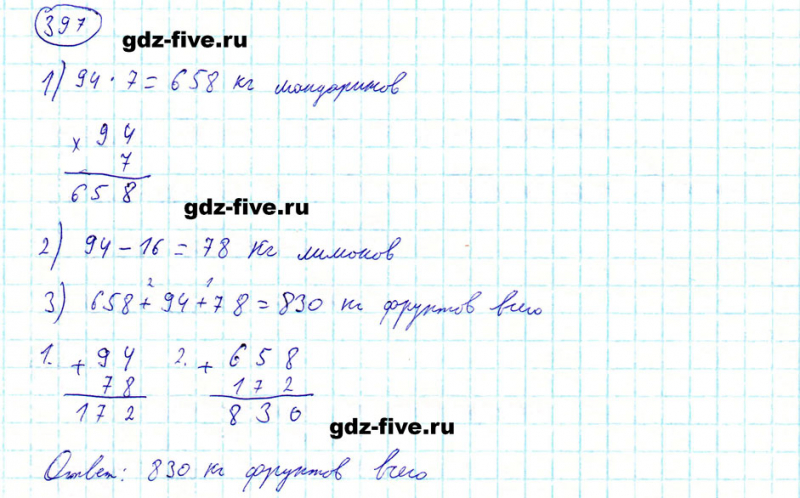 397
gdz-five.ru
1) 94 · 7 = 658 кг мандаринов
× 94
7
658
gdz-five.ru
2) 94 - 16 = 78 кг лимонов
2 1
3) 658 + 94 + 78 = 830 кг фруктов всего
1. + 94 2. + 658
78 172
172 830
gdz-five.ru
Ответ: 830 кг фруктов всего